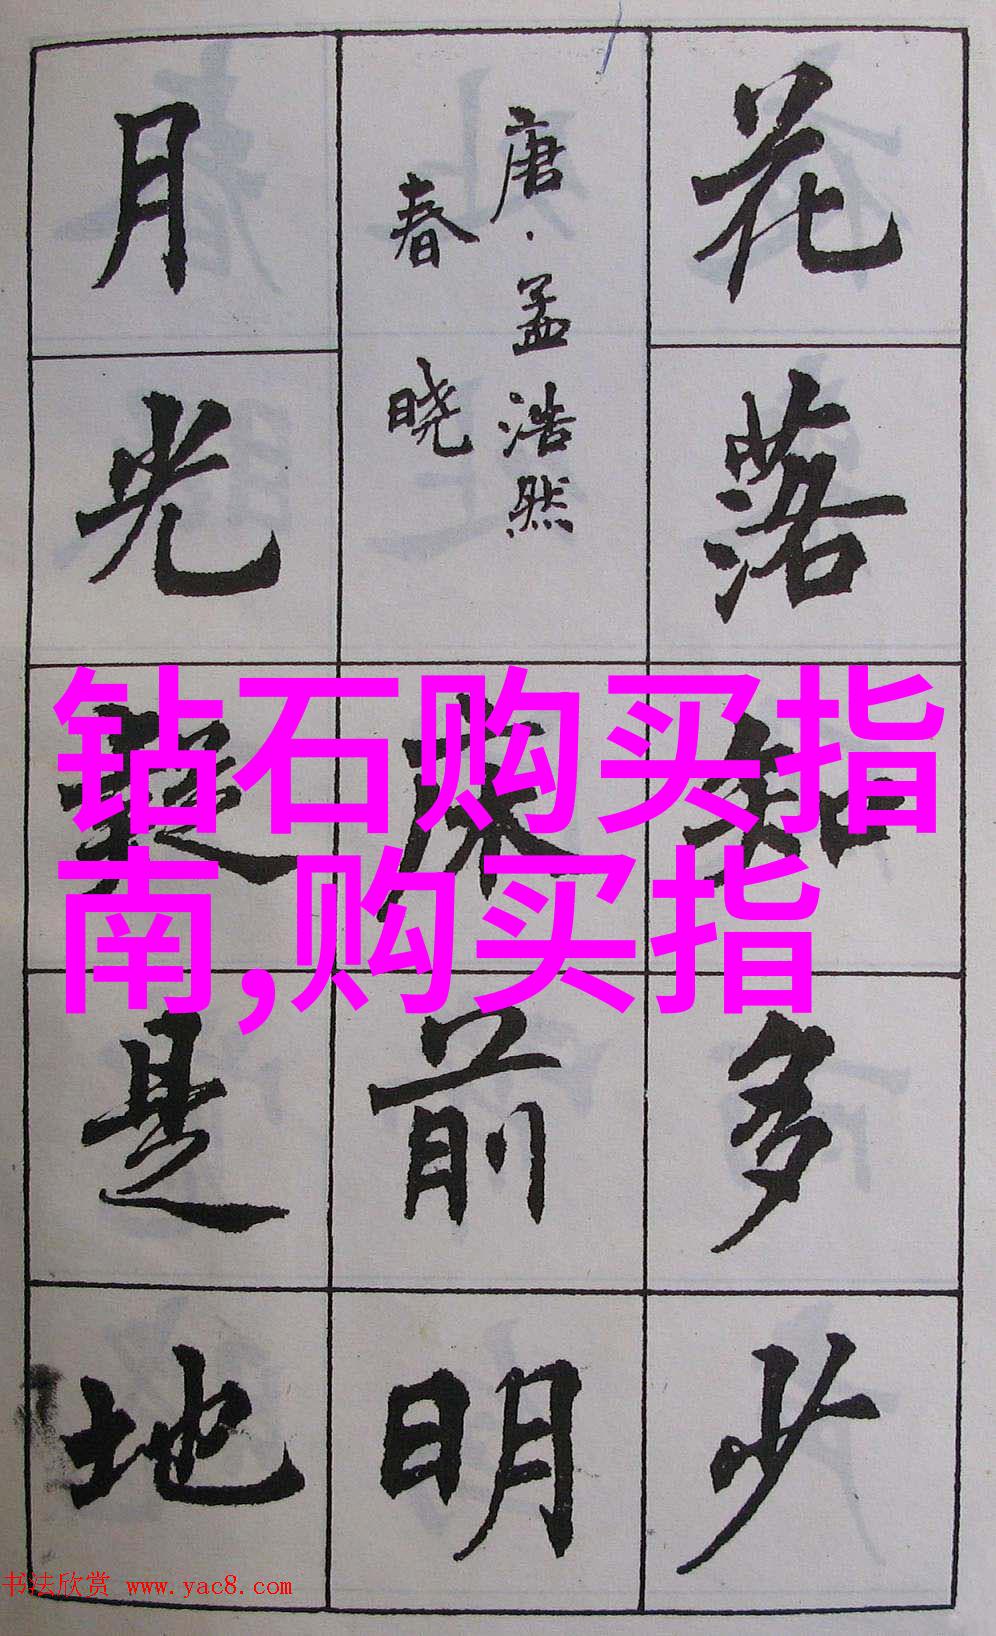 花落知多少
唐·孟浩然
春晓
床前明
月光疑是地
钻石购买指
南,购买指
书法欣赏 www.yac8.com